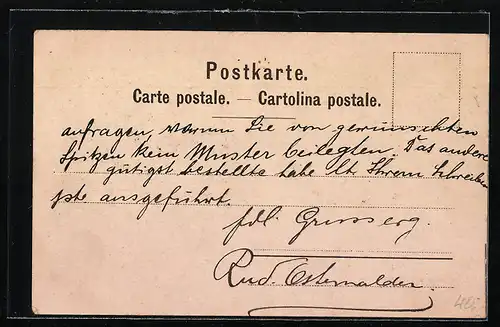 Postkarte.
Carte postale. — Cartolina postale.
anfragen, warum Sie von gewünschten
Spitzen kein Muster beilegten. Das andere
gütigst bestellte habe lt. Ihrem Schreiben
ausgeführt.
fdl.
Rud. Osterwalder